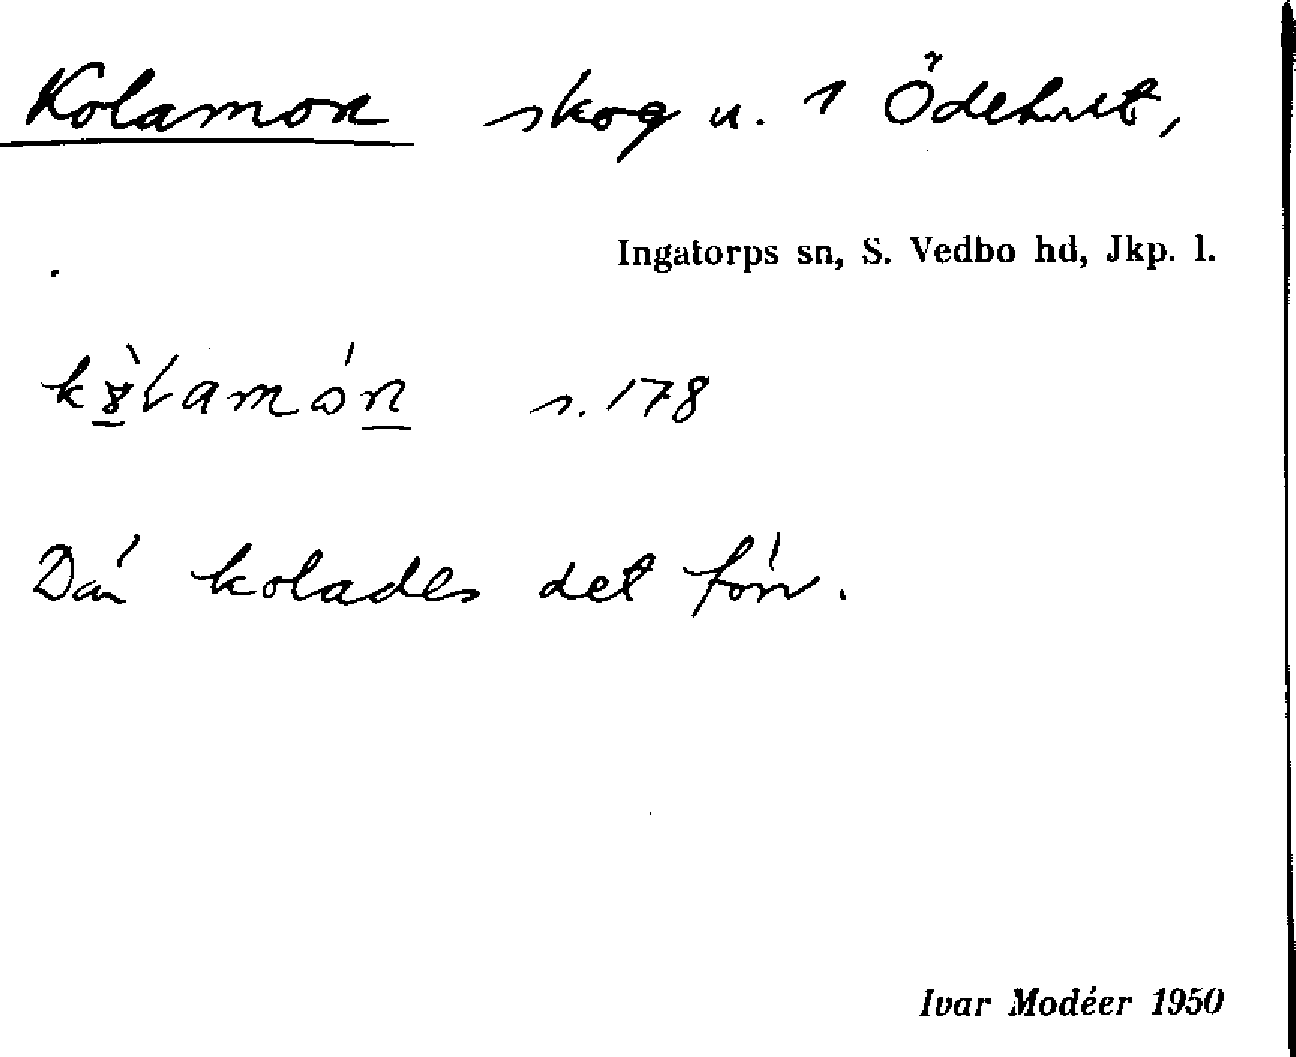 Kolamon skog u. 1 Ödehult,
Ingatorps sn, S. Vedbo hd, Jkp. l.
s. 178
Där kolades det förr.
Ivar Modéer 1950